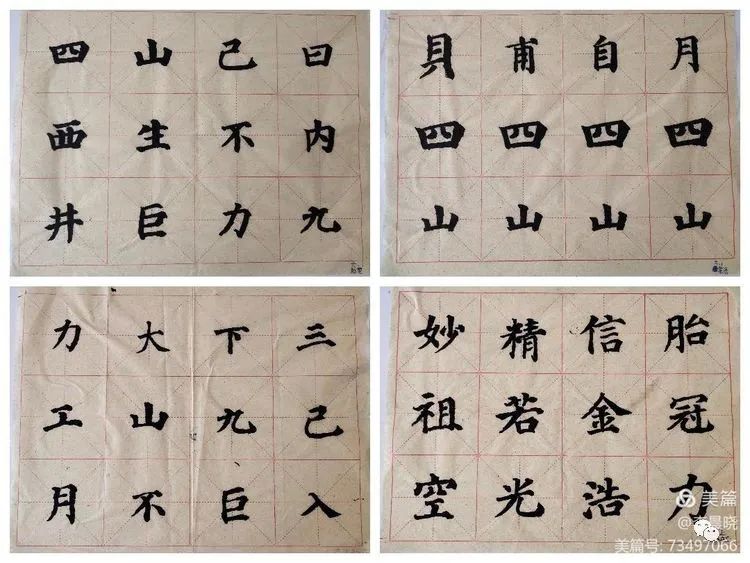 四山己曰
西生不内
井巨力九
貝甫自月
四四四四
山山山山
力大下三
工山九己
月不巨入
妙精信胎
祖若金冠
空光浩力
美篇
晨晓
美篇号: 73497066